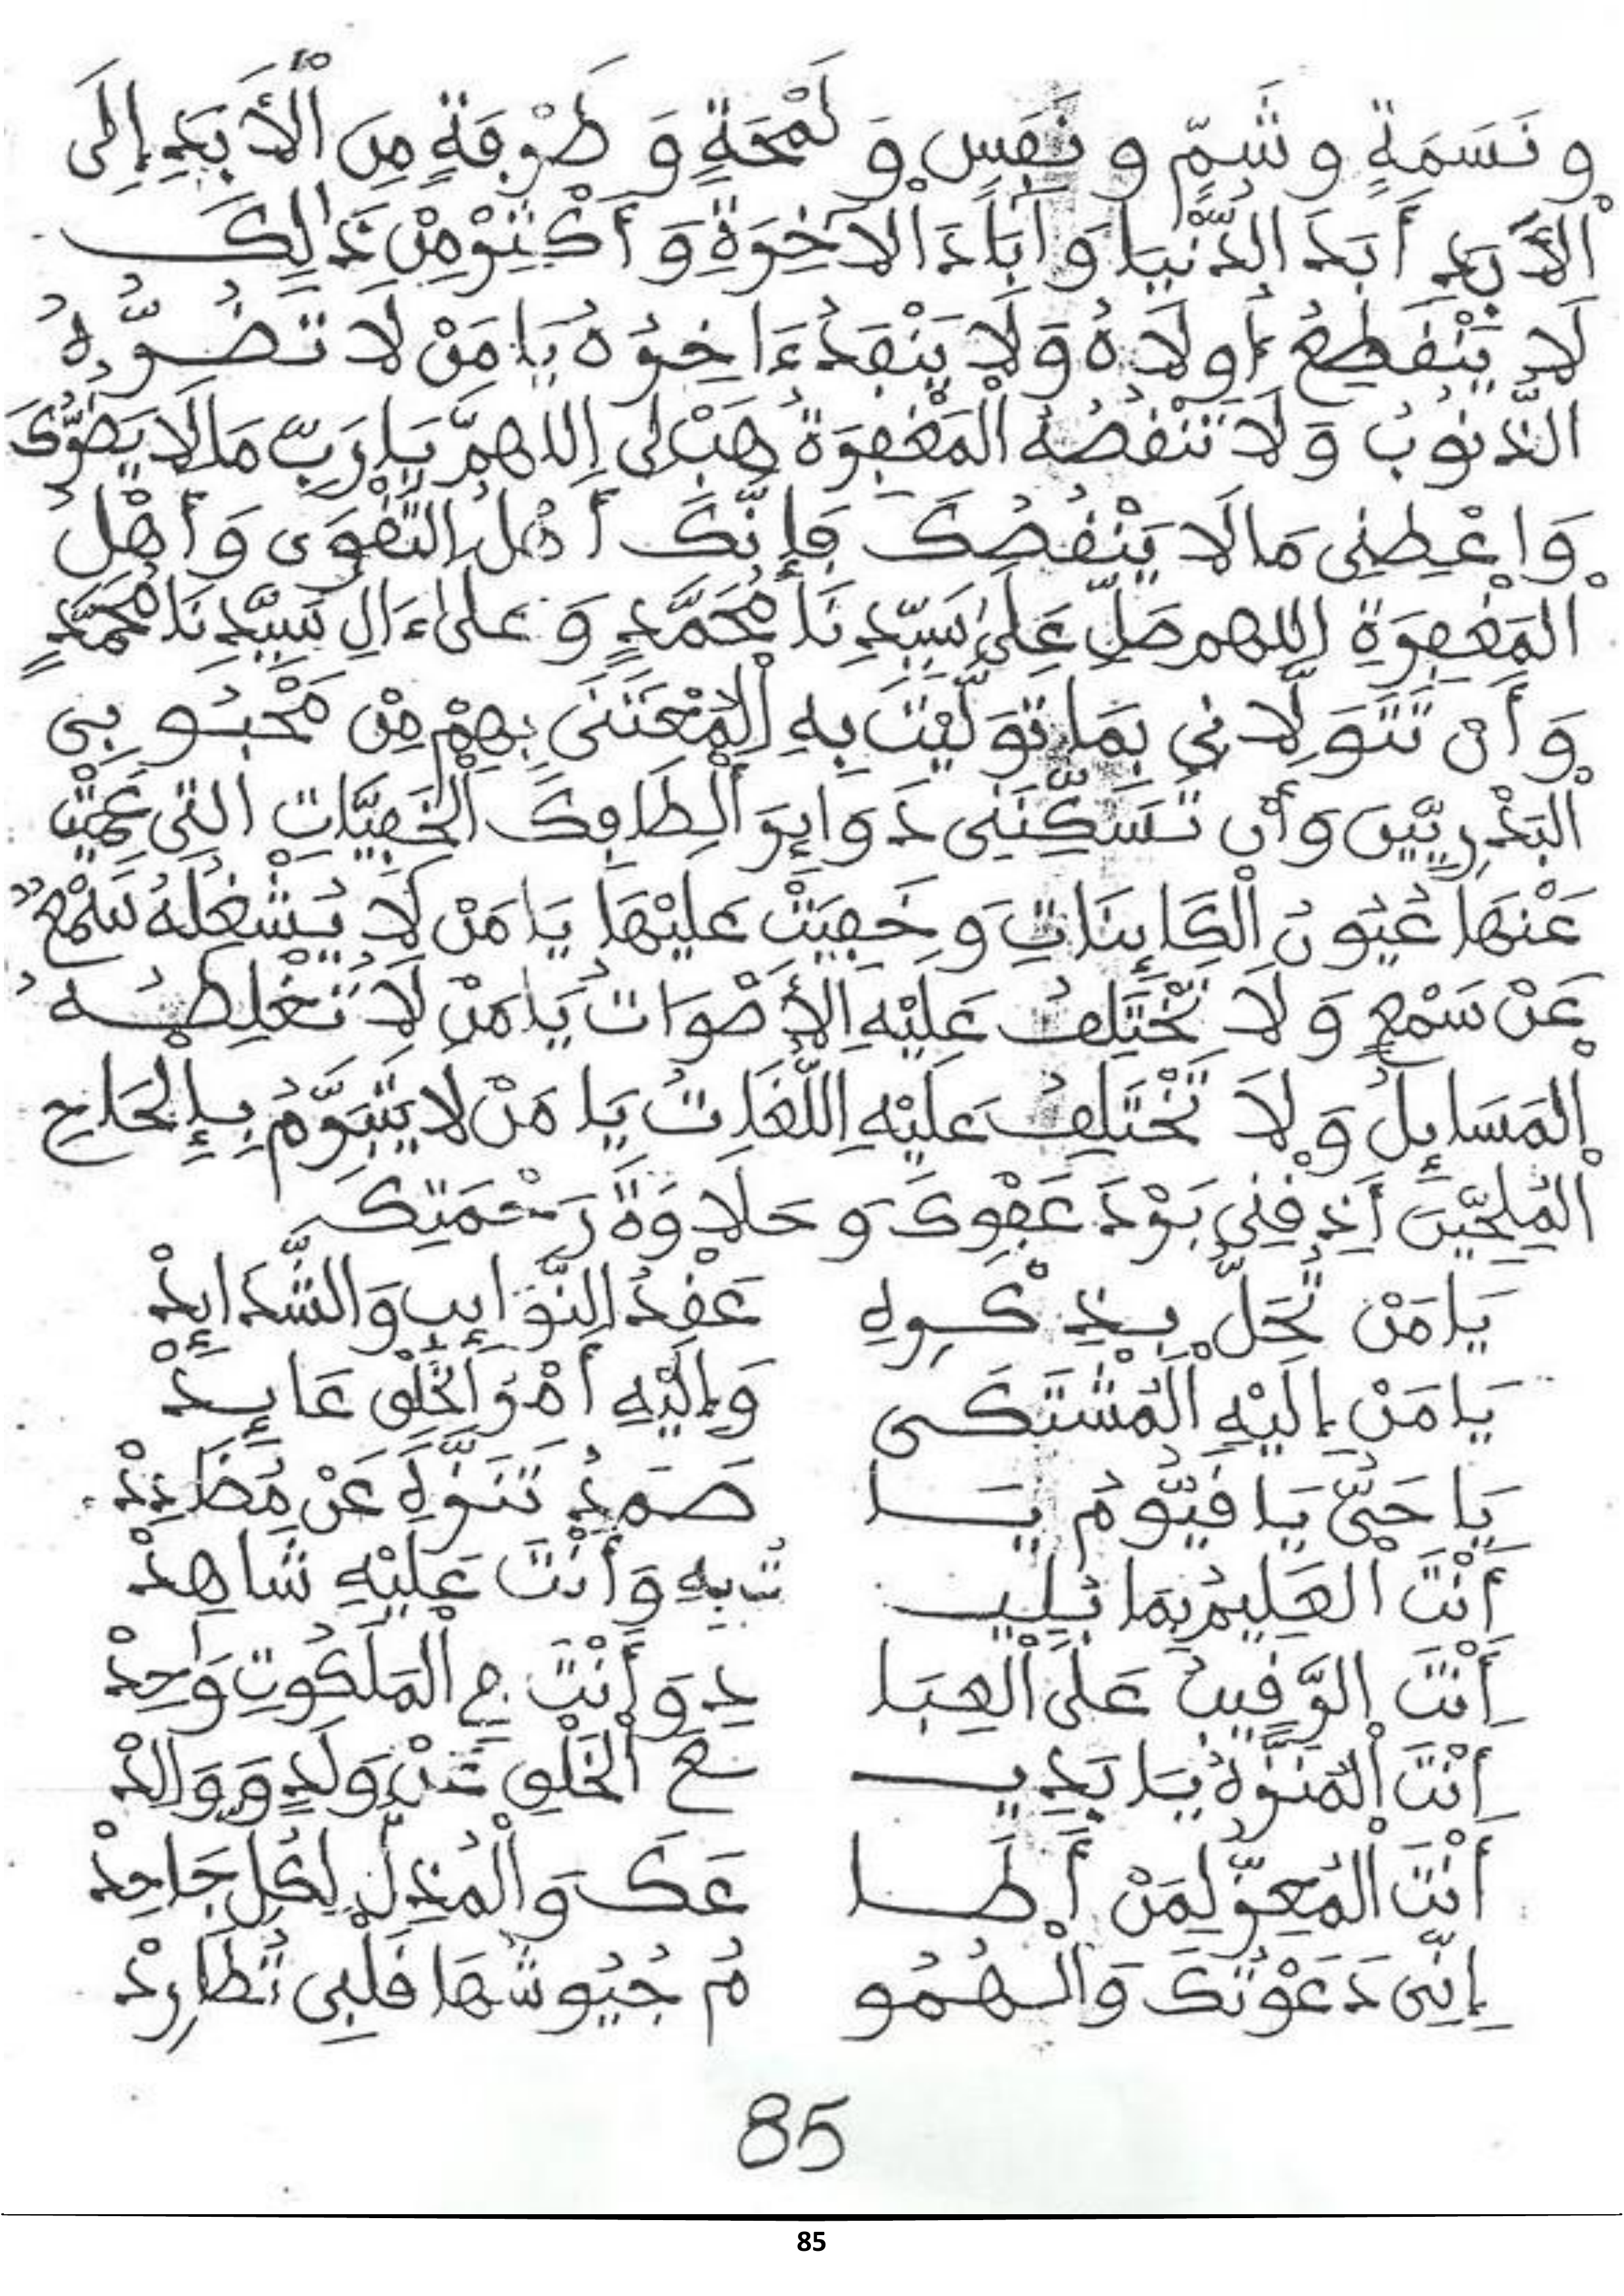 و نَسَمَةٍ و شَمٍّ و نَفَسٍ وَ لَمْحَةٍ وَ طَرْفَةٍ مِنَ الْأَبَدِ إِلَى
الْأَبَدِ أَبَدَ الدُّنْيَا وَ آبَادَ الْآخِرَةِ وَ أَكْثَرَ مِنْ ذَالِكَ
لَا يَنْقَطِعُ أُولَاهُ وَلَا يَنْفَدُ ءَاخِرُهُ يَا مَنْ لَا تَضُرُّهُ
الذُّنُوبُ وَ لَا تَنْقُصُهُ الْمَغْفِرَةُ هَبْ لِى اللهمَّ يَا رَبِّ مَا لَا يَضُرُّكَ
وَاعْطِنِى مَا لَا يَنْقُصُكَ فَإِنَّكَ أَهْلُ التَّقْوَى وَ أَهْلُ
الْمَغْفِرَةِ اللهم صَلِّ عَلَى سَيِّدِنَا مُحَمَّدٍ وَ عَلَى ءَالِ سَيِّدِنَا مُحَمَّدٍ
وَ أَنْ تَتَوَلَّانِى بِمَا تَوَلَّيْتَ بِهِ الْمُعْتَنَى بِهِمْ مِنْ مَحْبُوبِى
الْبَدْرِيِّينَ وَ أَنْ تُسَكِّنَنِى دَوَايِرَ أَلْطَافِكَ الْخَفِيَّاتِ التِى عَمِيَتْ
عَنْهَا عُيُونُ الْكَايِنَاتِ وَ خَفِيَتْ عَلَيْهَا يَا مَنْ لَا يُشْغِلُهُ سَمْعٌ
عَنْ سَمْعٍ وَ لَا تَخْتَلِفُ عَلَيْهِ الْأَصْوَاتُ يَا مَنْ لَا تُغْلِطُهُ
الْمَسَايِلُ وَ لَا تَخْتَلِفُ عَلَيْهِ اللُّغَاتُ يَا مَنْ لَا يَتَبَرَّمُ بِإِلْحَاحِ
الْمُلِحِّينَ أَذِقْنِى بَرْدَ عَفْوِكَ وَ حَلَاوَةَ رَحْمَتِكَ
يَا مَنْ تُحَلُّ بِذِكْرِهِ عُقَدُ النَّوَايِبِ وَالشَّدَايِدْ
يَا مَنْ إِلَيْهِ الْمُشْتَكَى وَ إِلَيْهِ أَمْرُ الْخَلْقِ عَايِدْ
يَا حَيُّ يَا قَيُّومُ يَا صَمَدُ تَنَزَّهَ عَنْ مُضَادِدْ
أَنْتَ الْعَلِيمُ بِمَا بُلِيـ ـتُ بِهِ وَ أَنْتَ عَلَيْهِ شَاهِدْ
أَنْتَ الرَّقِيبُ عَلَى الْعِبَا دِ وَ أَنْتَ فِى الْمَلَكُوتِ وَاحِدْ
أَنْتَ الْمُنَزَّهُ يَا بَدِيـ ـعَ الْخَلْقِ عَنْ وَلَدٍ وَ وَالِدْ
أَنْتَ الْمُعِزُّ لِمَنْ أَطَا عَكَ وَ الْمُذِلُّ لِكُلِّ جَاحِدْ
إِنِّى دَعَوْتُكَ وَالْهُمُو مُ جُيُوشُهَا قَلْبِى تُطَارِدْ
85
85